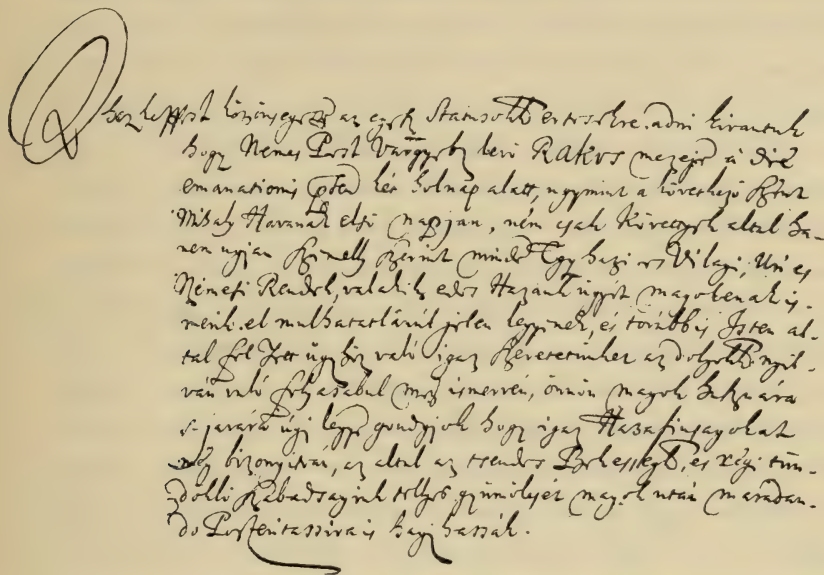 közönseges az egesz Statusokk ertesekre adni kivantuk
hogy Nemes Pest Varmgyeb levö RAKOS mezején à die
emanationis két holnap alatt, ugymint a következö Szent
Mihaly Havanak elsö napjan, ném csak Követtyek altal ha-
nem ugjan Szemelly szerint minden Egy hazi es Vilagi, Uri es
Némesi Rendek, valakik edes Hazank ügyit magokenak is-
merik, el mulhatatlanúl jelen legyenek, és továbbis Isten al-
tal fel Tett ügyhöz való igaz Szeretetünket az dolgokk nyil-
ván való folyasabul meg ismervén, önnön magok hasznára
s javára úgi legyen gondgyok hogy igaz Hazafiusagokat
meg bizonyitván, az altal az csendes Bekessegk, es régi tün-
döklö Szabadsagunk tellyes gyümölcsét magok után maradan-
do Posteritassira is hagyhassák.